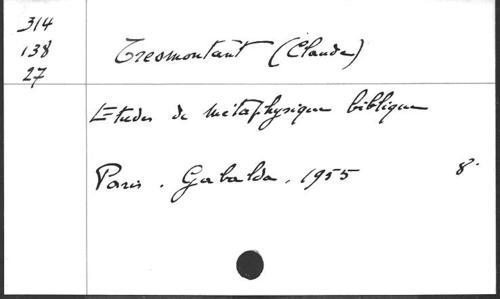 314
138
27
Tresmontant (Claude)
Etudes de métaphysique biblique
Paris. Gabalda. 1955 8°